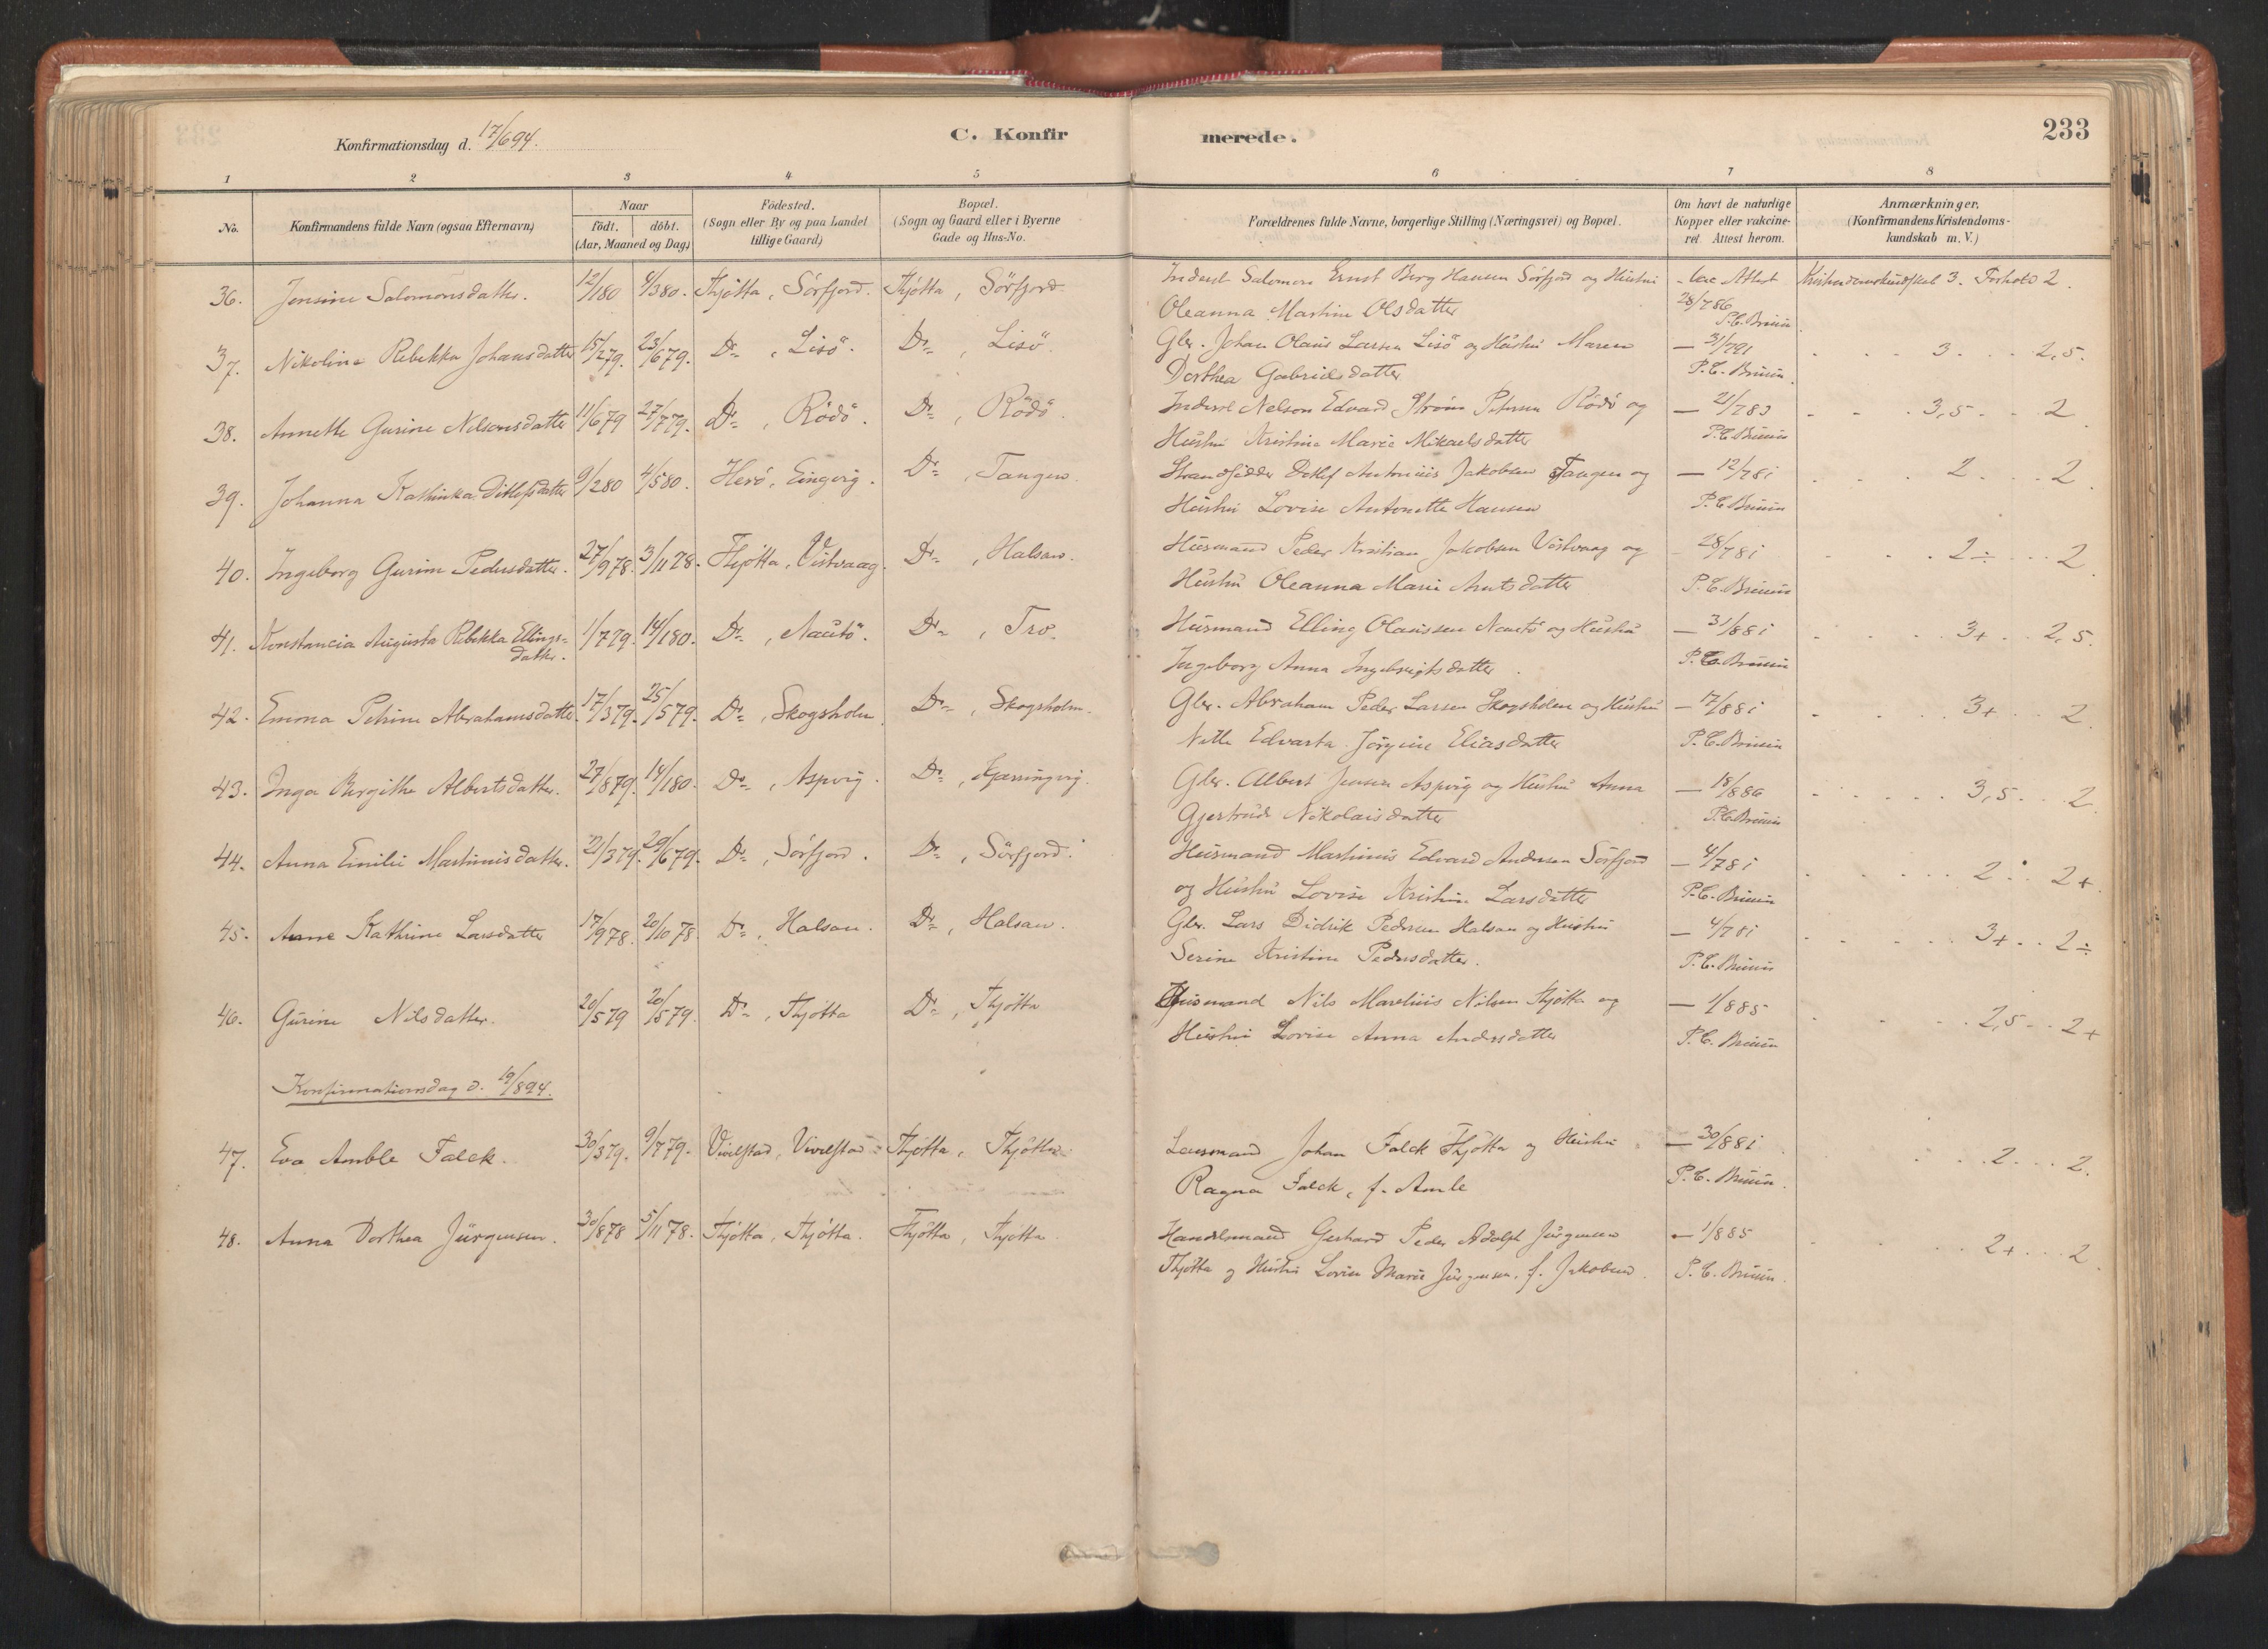 Konfirmationsdag d. 17/6 94.
C. Konfirmerede.
233
1 2 3 4 5 6 7 8
No.
Konfirmandens fulde Navn (ogsaa Efternavn)
Naar
födt. döbt.
(Aar, Maaned og Dag)
Födested.
(Sogn eller By og paa Landet
tillige Gaard)
Bopæl.
(Sogn og Gaard eller i Byerne
Gade og Hus-No.
Forældrenes fulde Navne, borgerlige Stilling (Næringsvei) og Bopæl.
Om havt de naturlige
Kopper eller vakcine-
ret. Attest herom.
Anmærkninger,
(Konfirmandens Kristendoms-
kundskab m. V.)
36. Jensine Salomonsdatter. 12/1 80 4/3 80. Thjötta, Sörfjord. Thjötta, Sörfjord Inderst Salomon Ernst Berg Hansen Sörfjord og Hustru - Vac Attest Kristendomskundskab 3. Forhold 2.
Oleanna Martine Olsdatter 28/7 86 P. C. Bruun
37. Nikoline Rebekka Johansdatter 15/2 79. 23/6 79. Do, Lisö. Do, Lisö. Gbr. Johan Olaus Larsen Lisö og Hustru Maren — 31/7 91 3 2,5.
Dorthea Gabrielsdatter P. C. Bruun.
38. Annette Gurine Nelsonsdatter 11/6 79 27/7 79. Do, Rödö. Do, Rödö. Inderst Nelson Edvard Ström Petersen Rödö og — 21/7 83 3,5 2
Hustru Kristine Marie Mikaelsdatter P. C. Bruun
39. Johanna Kathinka Ditlefsdatter 9/2 80 4/5 80. Herö, Eingvig. Do, Tangen. Strandsidder Ditlef Antonius Jakobsen Tangen og — 12/7 81 2 2.
Hustru Lovise Antonette Hansen P. C. Bruun
40. Ingeborg Gurine Pedersdatter. 27/9 78. 3/11 78. Thjötta, Vistvaag. Do, Halsan. Husmand Peder Kristian Jakobsen Vistvaag og 28/7 81 2÷ 2.
Hustru Oleanna Marie Arntsdatter P. C. Bruun
41. Konstancia Augusta Rebekka Ellings= 1/7 79. 14/1 80. Do, Nautö. Do, Tro. Husmand Elling Olaussen Nautö og Hustru — 31/8 81 3+ 2,5.
datter. Ingeborg Anna Ingebrigtsdatter. P. C. Bruun
42. Emma Petrine Abrahamsdatter. 17/3 79. 25/5 79. Do, Skogsholm. Do, Skogsholm. Gbr. Abraham Peder Larsen Skogsholm og Hustru — 17/8 81 3+ 2.
Nille Edvarta Jörgine Eliasdatter P. C. Bruun
43. Inga Birgithe Albertsdatter. 27/8 79. 14/1 80. Do, Aspvig. Do, Kjærringvig. Gbr. Albert Jensen Aspvig og Hustru Anna — 18/8 86 3,5 2.
Gjertrude Nikolaisdatter P. C. Bruun
44. Anna Emilie Martinusdatter. 21/3 79. 29/6 79. Do, Sörfjord. Do, Sörfjord. Husmand Martinus Edvard Andersen Sörfjord — 4/7 81 2 2+.
og Hustru Lovise Kristine Larsdatter P. C. Bruun
45. Anne Kathrine Larsdatter 17/9 78. 20/10 78 Do, Halsan. Do, Halsan. Gbr. Lars Didrik Pedersen Halsan og Hustru — 4/7 81 3+ 2÷
Serine Kristine Pedersdatter. P. C. Bruun
46. Gurine Nilsdatter. 20/5 79 20/5 79. Do, Thjötta Do, Thjötta Husmand Nils Marelius Nilsen Thjötta og — 1/8 85 2,5 2+
Hustru Lovise Anna Andersdatter P. C. Bruun
Konfirmationsdag d. 19/8 94.
47. Eva Amble Falck. 30/3 79. 9/7 79. Vivelstad, Vivelstad Thjötta, Thjötta. Lensmand Johan Falck Thjötta og Hustru — 30/8 81 2 2.
Ragna Falck, f. Amle P. C. Bruun.
48. Anna Dorthea Jürgensen. 30/8 78 5/11 78. Thjötta, Thjötta. Thjötta, Thjötta Handelsmand Gerhard Peder Adolph Jürgensen — 1/8 85 2+ 2
Thjötta og Hustru Lovise Marie Jürgensen, f. Jakobsen. P. C. Bruun.